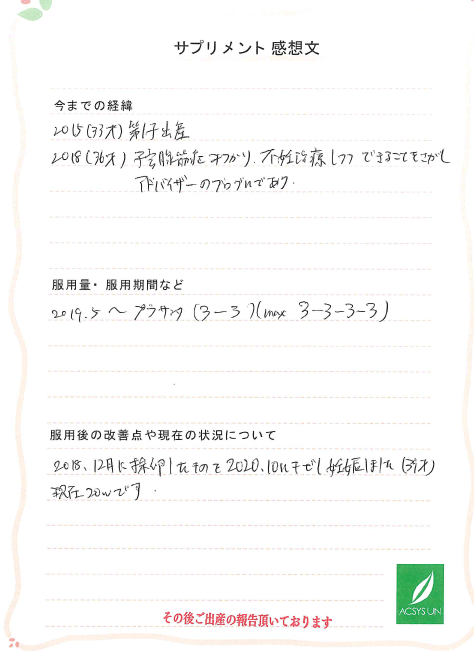 サプリメント 感想文
今までの経緯
2015(33才) 第1子出産
2018(36才) 子宮腺筋症をわかり、不妊治療しつつ できることをさがし
アドバイザーのブログにであう.
服用量・服用期間など
2019.5 〜 プラセンタ (3-3)(max 3-3-3-3)
服用後の改善点や現在の状況について
2018.12月に採卵したものを2020.10にもどし妊娠しました(38才)
現在20wです.
ACSYS UN
その後ご出産の報告頂いております